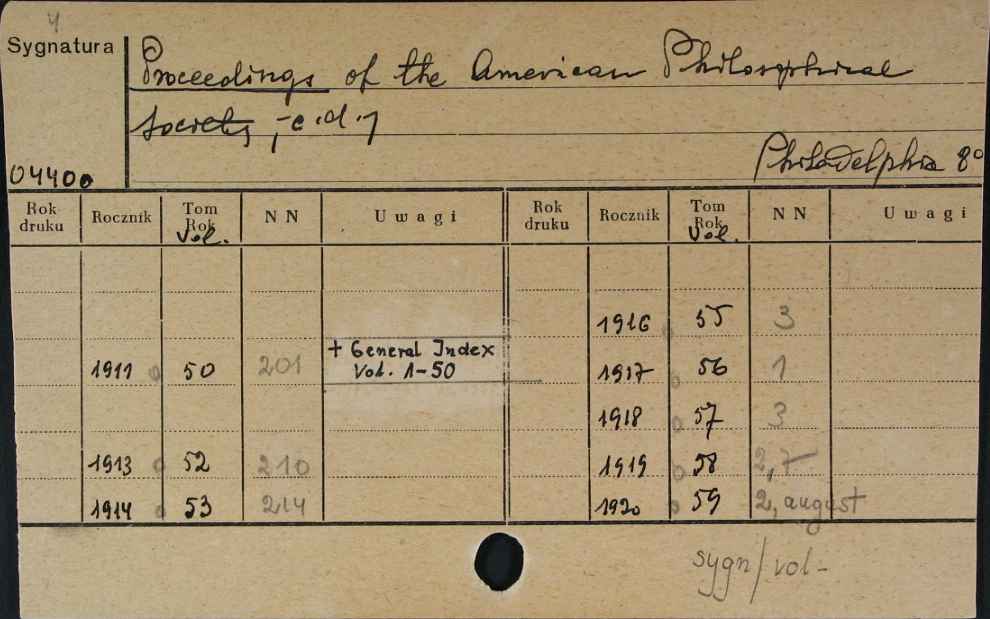 4
Sygnatura
Proceedings of the American Philosophical
Society, c.d.
Philadelphia 8°
04400
Rok druku Rocznik Tom Rok Vol. N N Uwagi Rok druku Rocznik Tom Rok Vol. N N Uwagi
1916 o 55 3
1911 o 50 201 + General Index Vol. 1-50 1917 o 56 1
1918 o 57 3
1913 o 52 210 1919 o 58 2, 7
1914 o 53 214 1920 o 59 2, august
sygn/vol-